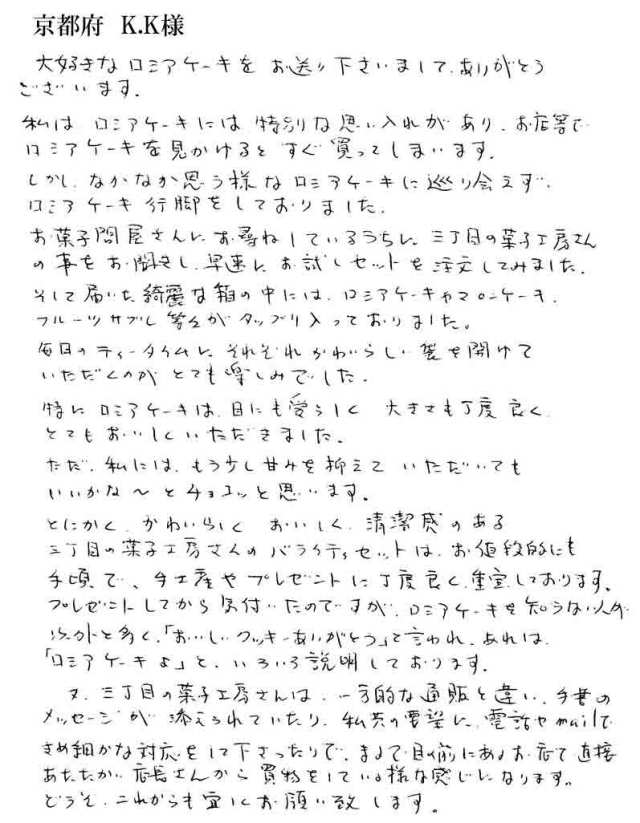 京都府 K.K様
大好きなロミアケーキを お送り下さいまして、ありがとう
ございます。
私は ロミアケーキには 特別な思い入れがあり、お店等で
ロミアケーキを見かけると すぐ買ってしまいます。
しかし、なかなか思う様なロミアケーキに巡り会えず、
ロミアケーキ行脚をしておりました。
お菓子問屋さんに お尋ねしているうちに 三丁目の菓子工房さん
の事をお聞きし、早速に お試しセットを注文してみました。
そして届いた綺麗な箱の中には、ロミアケーキやマロンケーキ、
フルーツサブレ 等々が タップリ入っておりました。
毎日のティータイムに それぞれかわいらしい袋を開けて
いただくのが とても楽しみでした。
特に ロミアケーキは、目にも愛らしく 大きさも丁度良く、
とてもおいしくいただきました。
ただ、私には、もう少し甘みを抑えて いただいても
いいかな～とチョコッと思います。
とにかく、かわいらしく おいしく、清潔感のある
三丁目の菓子工房さんの バラィティセットは、お値段的にも
手頃で、手土産や プレゼントに丁度良く、重宝しております。
プレゼントしてから 気付いたのですが、ロミアケーキを知らない人が
以外と多く、「おいしいクッキーありがとう」と言われ、あれは、
「ロミアケーキよ」と、いろいろ説明しております。
又、三丁目の菓子工房さんは、一方的な通販と違い、手書の
メッセージが 添えられていたり、私共の要望に、電話やmailで
きめ細かな対応をして下さったりで、まるで目の前にあるお店で 直接
あたたかい店長さんから 買物をしている様な感じになります。
どうぞ、これからも宜しくお願い致します。